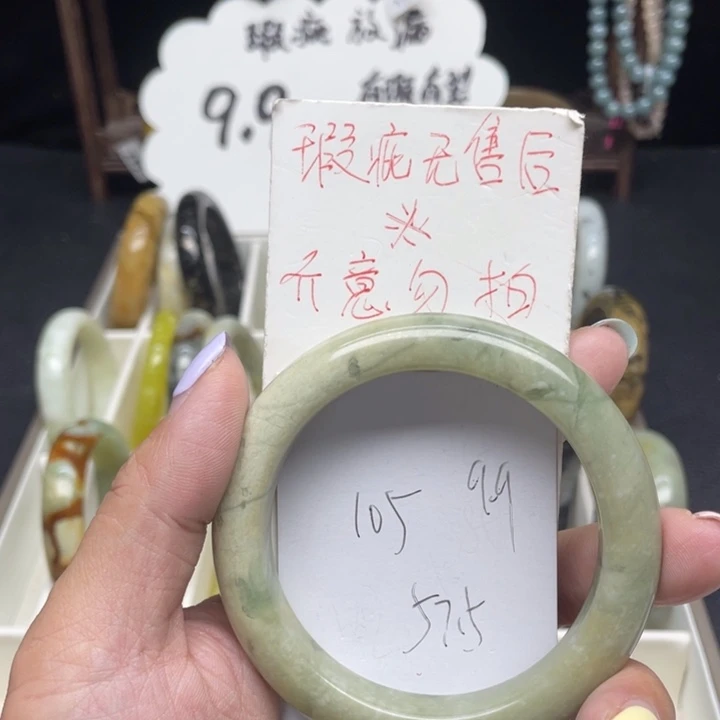 瑕疵放漏
9.9
瑕疵无售后
介意勿拍
105 99
57.5